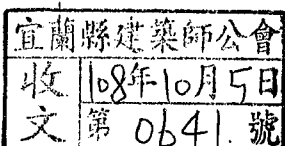 宜蘭縣建築師公會
收文
108年10月5日
第0641.號